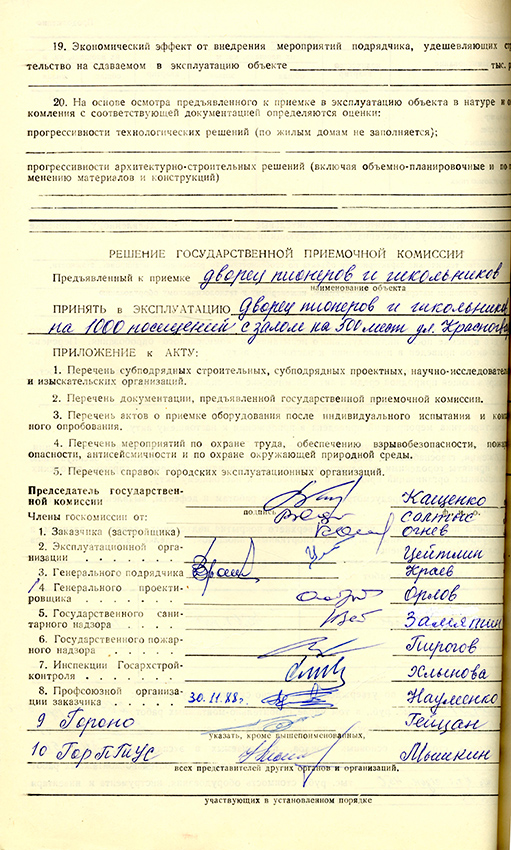 19. Экономический эффект от внедрения мероприятий подрядчика, удешевляющих
тельство на сдаваемом в эксплуатацию объекте тыс.
20. На основе осмотра предъявленного к приемке в эксплуатацию объекта в натуре и
комления с соответствующей документацией определяются оценки:
прогрессивности технологических решений (по жилым домам не заполняется);
прогрессивности архитектурно-строительных решений (включая объемно-планировочные и по
менению материалов и конструкций)
РЕШЕНИЕ ГОСУДАРСТВЕННОЙ ПРИЕМОЧНОЙ КОМИССИИ
Предъявленный к приемке дворец пионеров и школьников
наименование объекта
ПРИНЯТЬ В ЭКСПЛУАТАЦИЮ дворец пионеров и школьник
на 1000 посещений с залом на 500 мест ул. Красногв
ПРИЛОЖЕНИЕ к АКТУ:
1. Перечень субподрядных строительных, субподрядных проектных, научно-исследоват
и изыскательских организаций.
2. Перечень документации, предъявленной государственной приемочной комиссии.
3. Перечень актов о приемке оборудования после индивидуального испытания и
ного опробования.
4. Перечень мероприятий по охране труда, обеспечению взрывобезопасности,
опасности, антисейсмичности и по охране окружающей природной среды.
5. Перечень справок городских эксплуатационных организаций.
Председатель государствен-
ной комиссии Кащенко
подпись
Члены госкомиссии от:
1. Заказчика (застройщика) Огнев
2. Эксплуатационной орга-
низации Цейтлин
3. Генерального подрядчика Краев
4 Генерального проекти-
ровщика Орлов
5. Государственного сани-
тарного надзора Замятин
6. Государственного пожар-
ного надзора Пирогов
7. Инспекции Госархстрой-
контроля Хлынова
8. Профсоюзной организа-
ции заказчика 30.11.88г. Науменко
9 Гороно
указать, кроме вышепоименованных,
10 ГорПТУС Мышкин
всех представителей других органов и организаций,
участвующих в установленном порядке